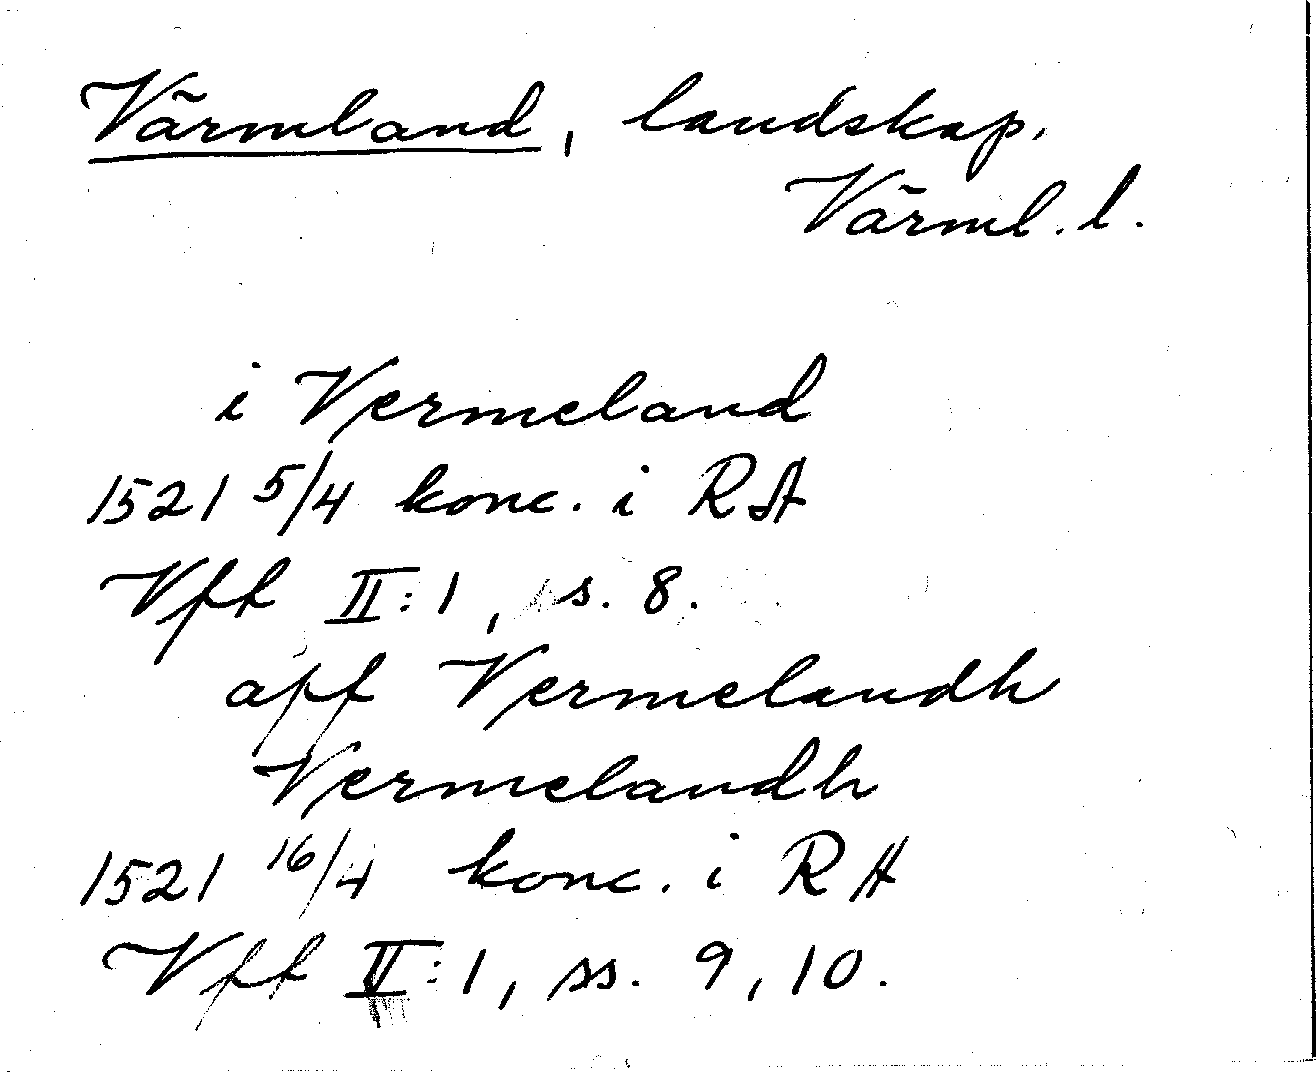 Värmland, landskap.
Värml. l.
i Vermeland
1521 5/4 konc. i RA
Vff II:1, s. 8.
aff Vermelandh
Vermelandh
1521 16/4 konc. i RA
Vff II:1, ss. 9, 10.